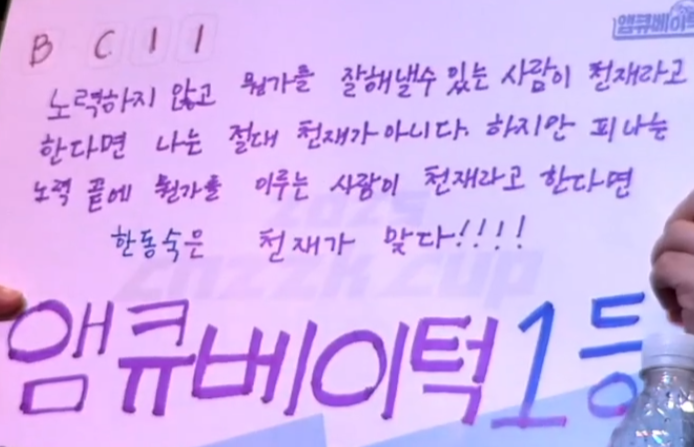 앰큐베이턱
B C 1 1
노력하지 않고 뭔가를 잘해낼수 있는 사람이 천재라고
한다면 나는 절대 천재가 아니다. 하지만 피나는
노력 끝에 뭔가를 이루는 사람이 천재라고 한다면
한동숙은 천재가 맞다!!!!
2025
CHZZK CUP
앰큐베이턱 1등